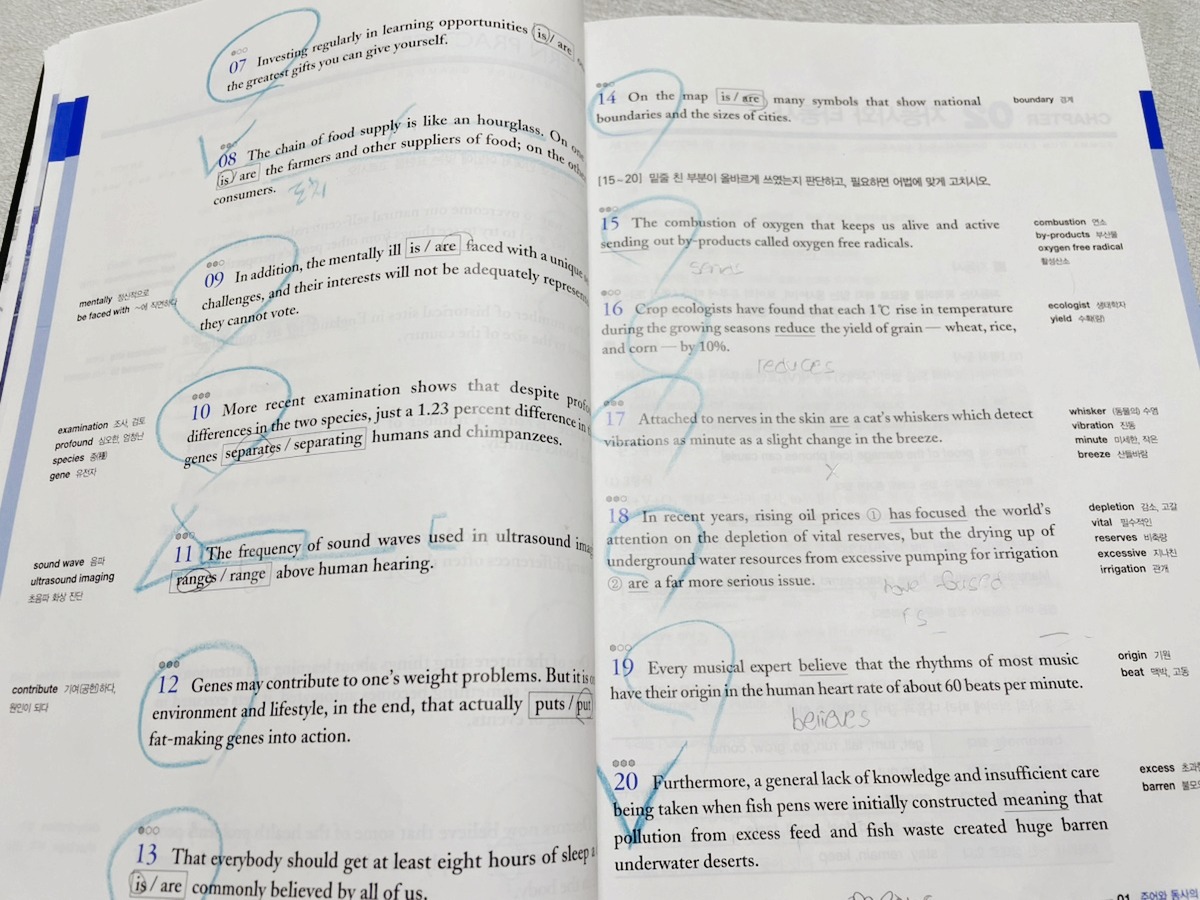 07 Investing regularly in learning opportunities is / are
the greatest gifts you can give yourself.
08 The chain of food supply is like an hourglass. On one
is / are the farmers and other suppliers of food; on the
consumers.
도치
09 In addition, the mentally ill is / are faced with a unique
challenges, and their interests will not be adequately
they cannot vote.
mentally 정신적으로
be faced with ~에 직면하다
10 More recent examination shows that despite
differences in the two species, just a 1.23 percent difference in
genes separates / separating humans and chimpanzees.
examination 조사, 검토
profound 심오한, 엄청난
species 종(種)
gene 유전자
11 The frequency of sound waves used in ultrasound
ranges / range above human hearing.
sound wave 음파
ultrasound imaging
초음파 화상 진단
12 Genes may contribute to one's weight problems. But it is
environment and lifestyle, in the end, that actually puts / put
fat-making genes into action.
contribute 기여(공헌)하다,
원인이 되다
13 That everybody should get at least eight hours of sleep
is / are commonly believed by all of us.
14 On the map is / are many symbols that show national
boundaries and the sizes of cities.
boundary 경계
[15~20] 밑줄 친 부분이 올바르게 쓰였는지 판단하고, 필요하면 어법에 맞게 고치시오.
15 The combustion of oxygen that keeps us alive and active
sending out by-products called oxygen free radicals.
sends
combustion 연소
by-products 부산물
oxygen free radical
활성산소
16 Crop ecologists have found that each 1℃ rise in temperature
during the growing seasons reduce the yield of grain — wheat, rice,
and corn — by 10%.
reduces
ecologist 생태학자
yield 수확(량)
17 Attached to nerves in the skin are a cat's whiskers which detect
vibrations as minute as a slight change in the breeze.
x
whisker (동물의) 수염
vibration 진동
minute 미세한, 작은
breeze 산들바람
18 In recent years, rising oil prices ① has focused the world's
attention on the depletion of vital reserves, but the drying up of
underground water resources from excessive pumping for irrigation
② are a far more serious issue.
have focused
is
depletion 감소, 고갈
vital 필수적인
reserves 비축량
excessive 지나친
irrigation 관개
19 Every musical expert believe that the rhythms of most music
have their origin in the human heart rate of about 60 beats per minute.
believes
origin 기원
beat 맥박, 고동
20 Furthermore, a general lack of knowledge and insufficient care
being taken when fish pens were initially constructed meaning that
pollution from excess feed and fish waste created huge barren
underwater deserts.
excess
barren
01 주어와 동사의